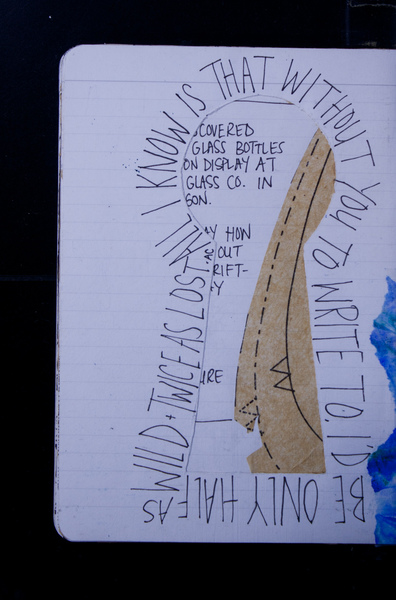 ALL I KNOW IS THAT WITHOUT YOU TO WRITE TO, I'D BE ONLY HALF AS WILD + TWICE AS LOST
COVERED
GLASS BOTTLES
ON DISPLAY AT
GLASS CO. IN
SON.
AY HOW
OUT
RIFT-
Y
URE